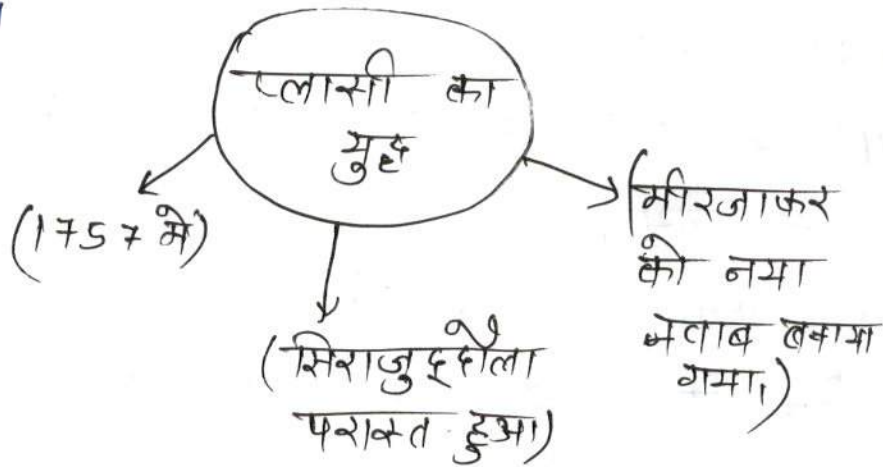 प्लासी का
युद्ध
(1757 मे)
(सिराजुद्दौला
परास्त हुआ)
(मीरजाफर
को नया
नवाब बनाया
गया।)